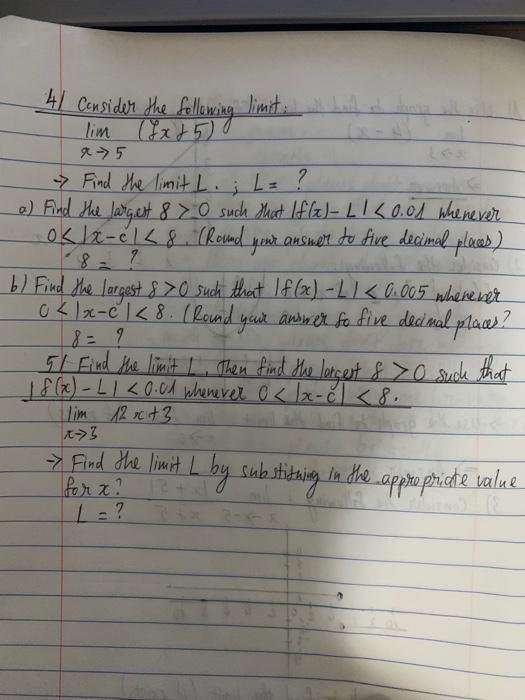 4/ Consider the following limit:
lim (7x+5)
x→5
→ Find the limit L. ; L = ?
a) Find the largest δ > 0 such that |f(x) - L| < 0.01 whenever
0 < |x-c| < δ. (Round your answer to five decimal places)
δ = ?
b) Find the largest δ > 0 such that |f(x) - L| < 0.005 whenever
0 < |x-c| < δ. (Round your answer to five decimal places?
δ = ?
5/ Find the limit L. Then find the largest δ > 0 such that
|f(x) - L| < 0.01 whenever 0 < |x-c| < δ.
lim 12x+3
x→3
→ Find the limit L by substituing in the appropriate value
for x?
L = ?